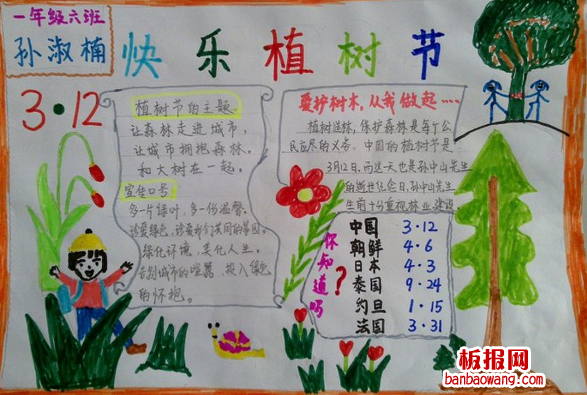 一年级六班
孙淑楠
快乐植树节
3·12
植树节的主题
让森林走进城市,
让城市拥抱森林,
和大树在一起。
宣传口号
多一片绿叶,多一份温馨。
珍爱绿色,珍爱我们共同的家园。
绿化环境,美化人生。
告别城市的喧嚣,投入绿色
的怀抱。
爱护树木,从我做起····
植树造林,保护森林是每个公
民应尽的义务。中国的植树节是
3月12日,而这天也是孙中山先生
的逝世纪念日,孙中山先生
生前十分重视林业建设
你知道吗?
中国 3·12
朝鲜 4·6
日本 4·3
泰国 9·24
约旦 1·15
法国 3·31
板报网
banbaowang.com